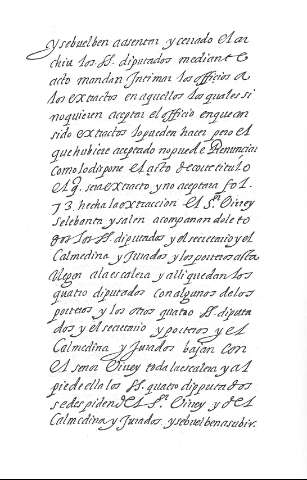 y se buelben a asentar y cerrado el ar
chiu los S. diputados mediante
acto mandan Intimar los officios a
los extractos en aquellos los quales si
no quieren aceptar el officio en que an
sido extractos lo pueden hacer pero el
que hubiere aceptado no puede Renunciar
como lo dispone el acto de corte titulo
el q. sera extracto y no aceptara fo 1.
73 hecha la extraccion el S.r Virrey
se lebanta y salen acompañandole to
dos los S. diputados y el secretario y el
Calmedina y Jurados y los porteros asta
llegar a la escalera y alli quedan los
quatro diputados con algunos de los
porteros y los otros quatro S. diputa
dos y el secretario y porteros y el
Calmedina y Jurados bajan con
el señor Virrey toda la escalera y al
pie de ella los S. quatro dipputados
se despiden del S.r Virrey y del
Calmedina y Jurados y se buelben a subir.